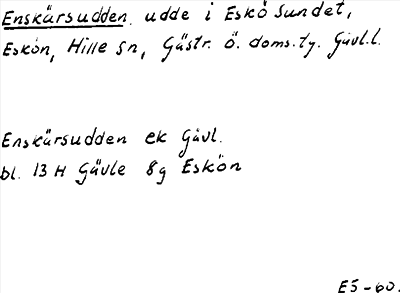 Enskärsudden, udde i Eskö Sundet,
Eskön, Hille sn, Gästr. Ö. doms.tg. Gävl.l.
Enskärsudden ek Gävl.
bl. 13 H Gävle 8g Eskön
E5-60.